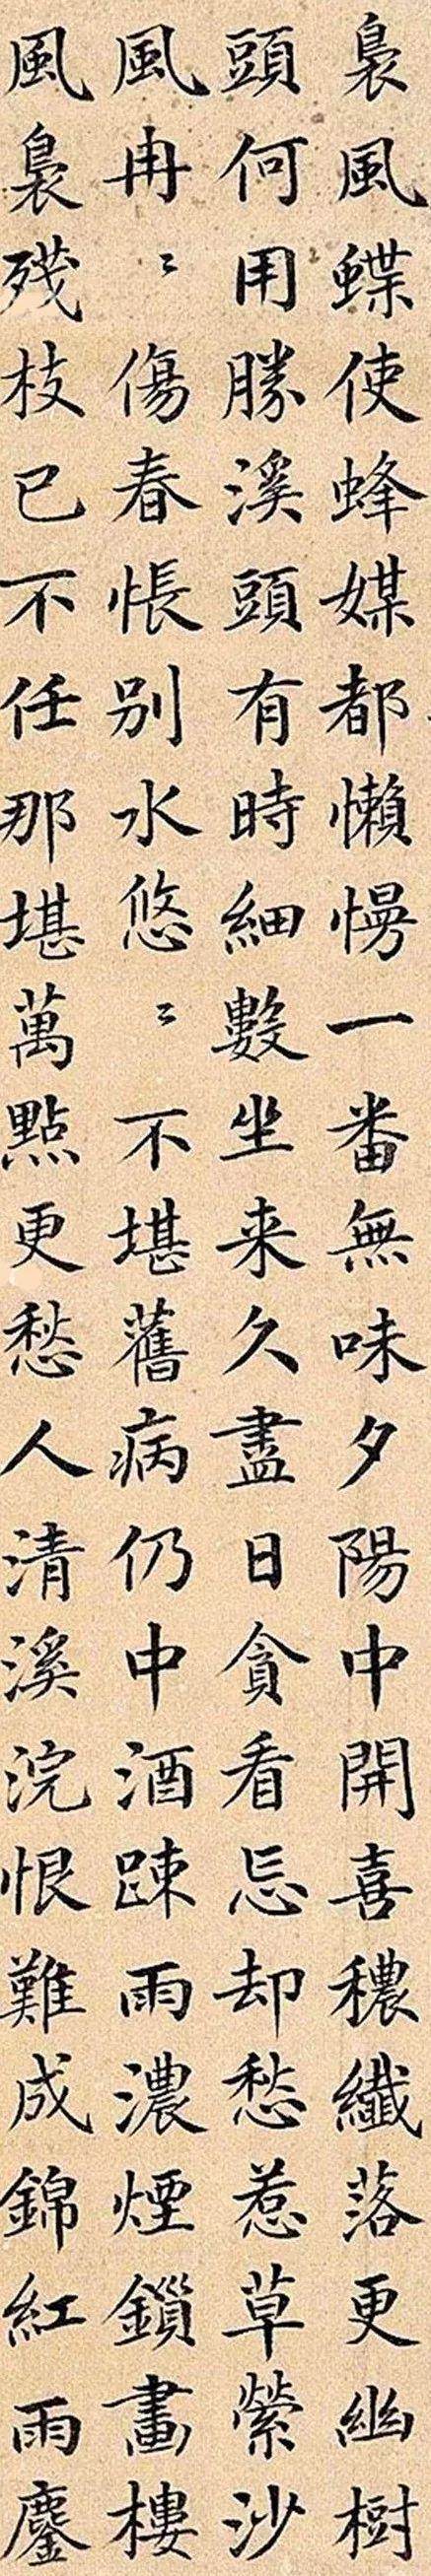 裊風蝶使蜂媒都懶慢一番無味夕陽中開喜穠纖落更幽樹
頭何用勝溪頭有時細數坐来久盡日貪看忘却愁惹草縈沙
風冉〻傷春悵别水悠〻不堪舊病仍中酒踈雨濃煙鎻畫樓
風裊殘枝已不任那堪萬點更愁人清溪浣恨難成錦紅雨鏖